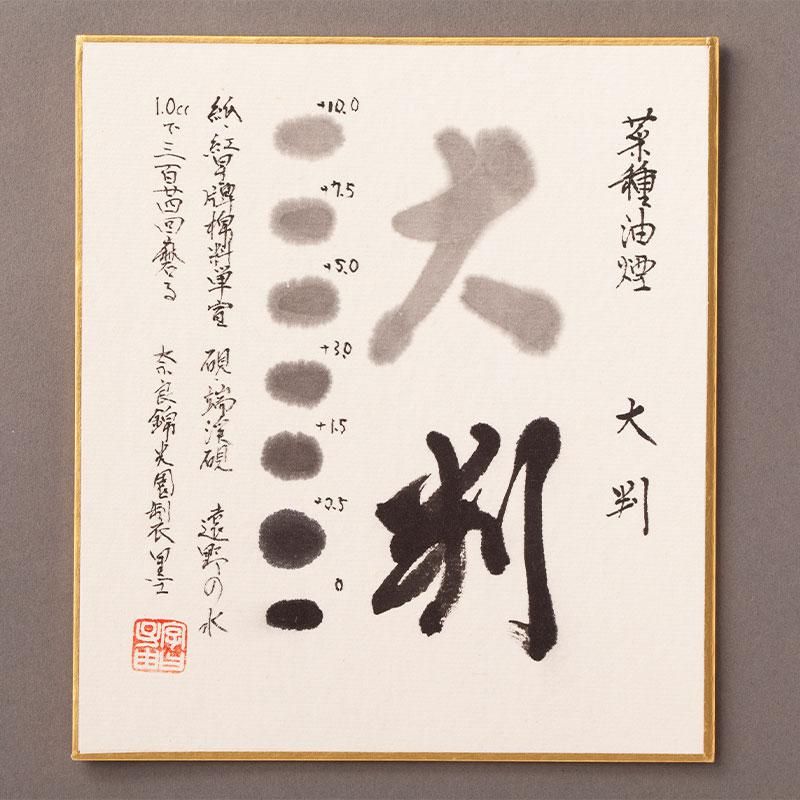 菜種油煙 大判
大判
+10.0
+7.5
+5.0
+3.0
+1.5
+0.5
0
紙・紅星牌棉料単宣 硯・端渓硯 遠野の水
1.0ccで三百廿四回磨る 奈良錦光園製墨